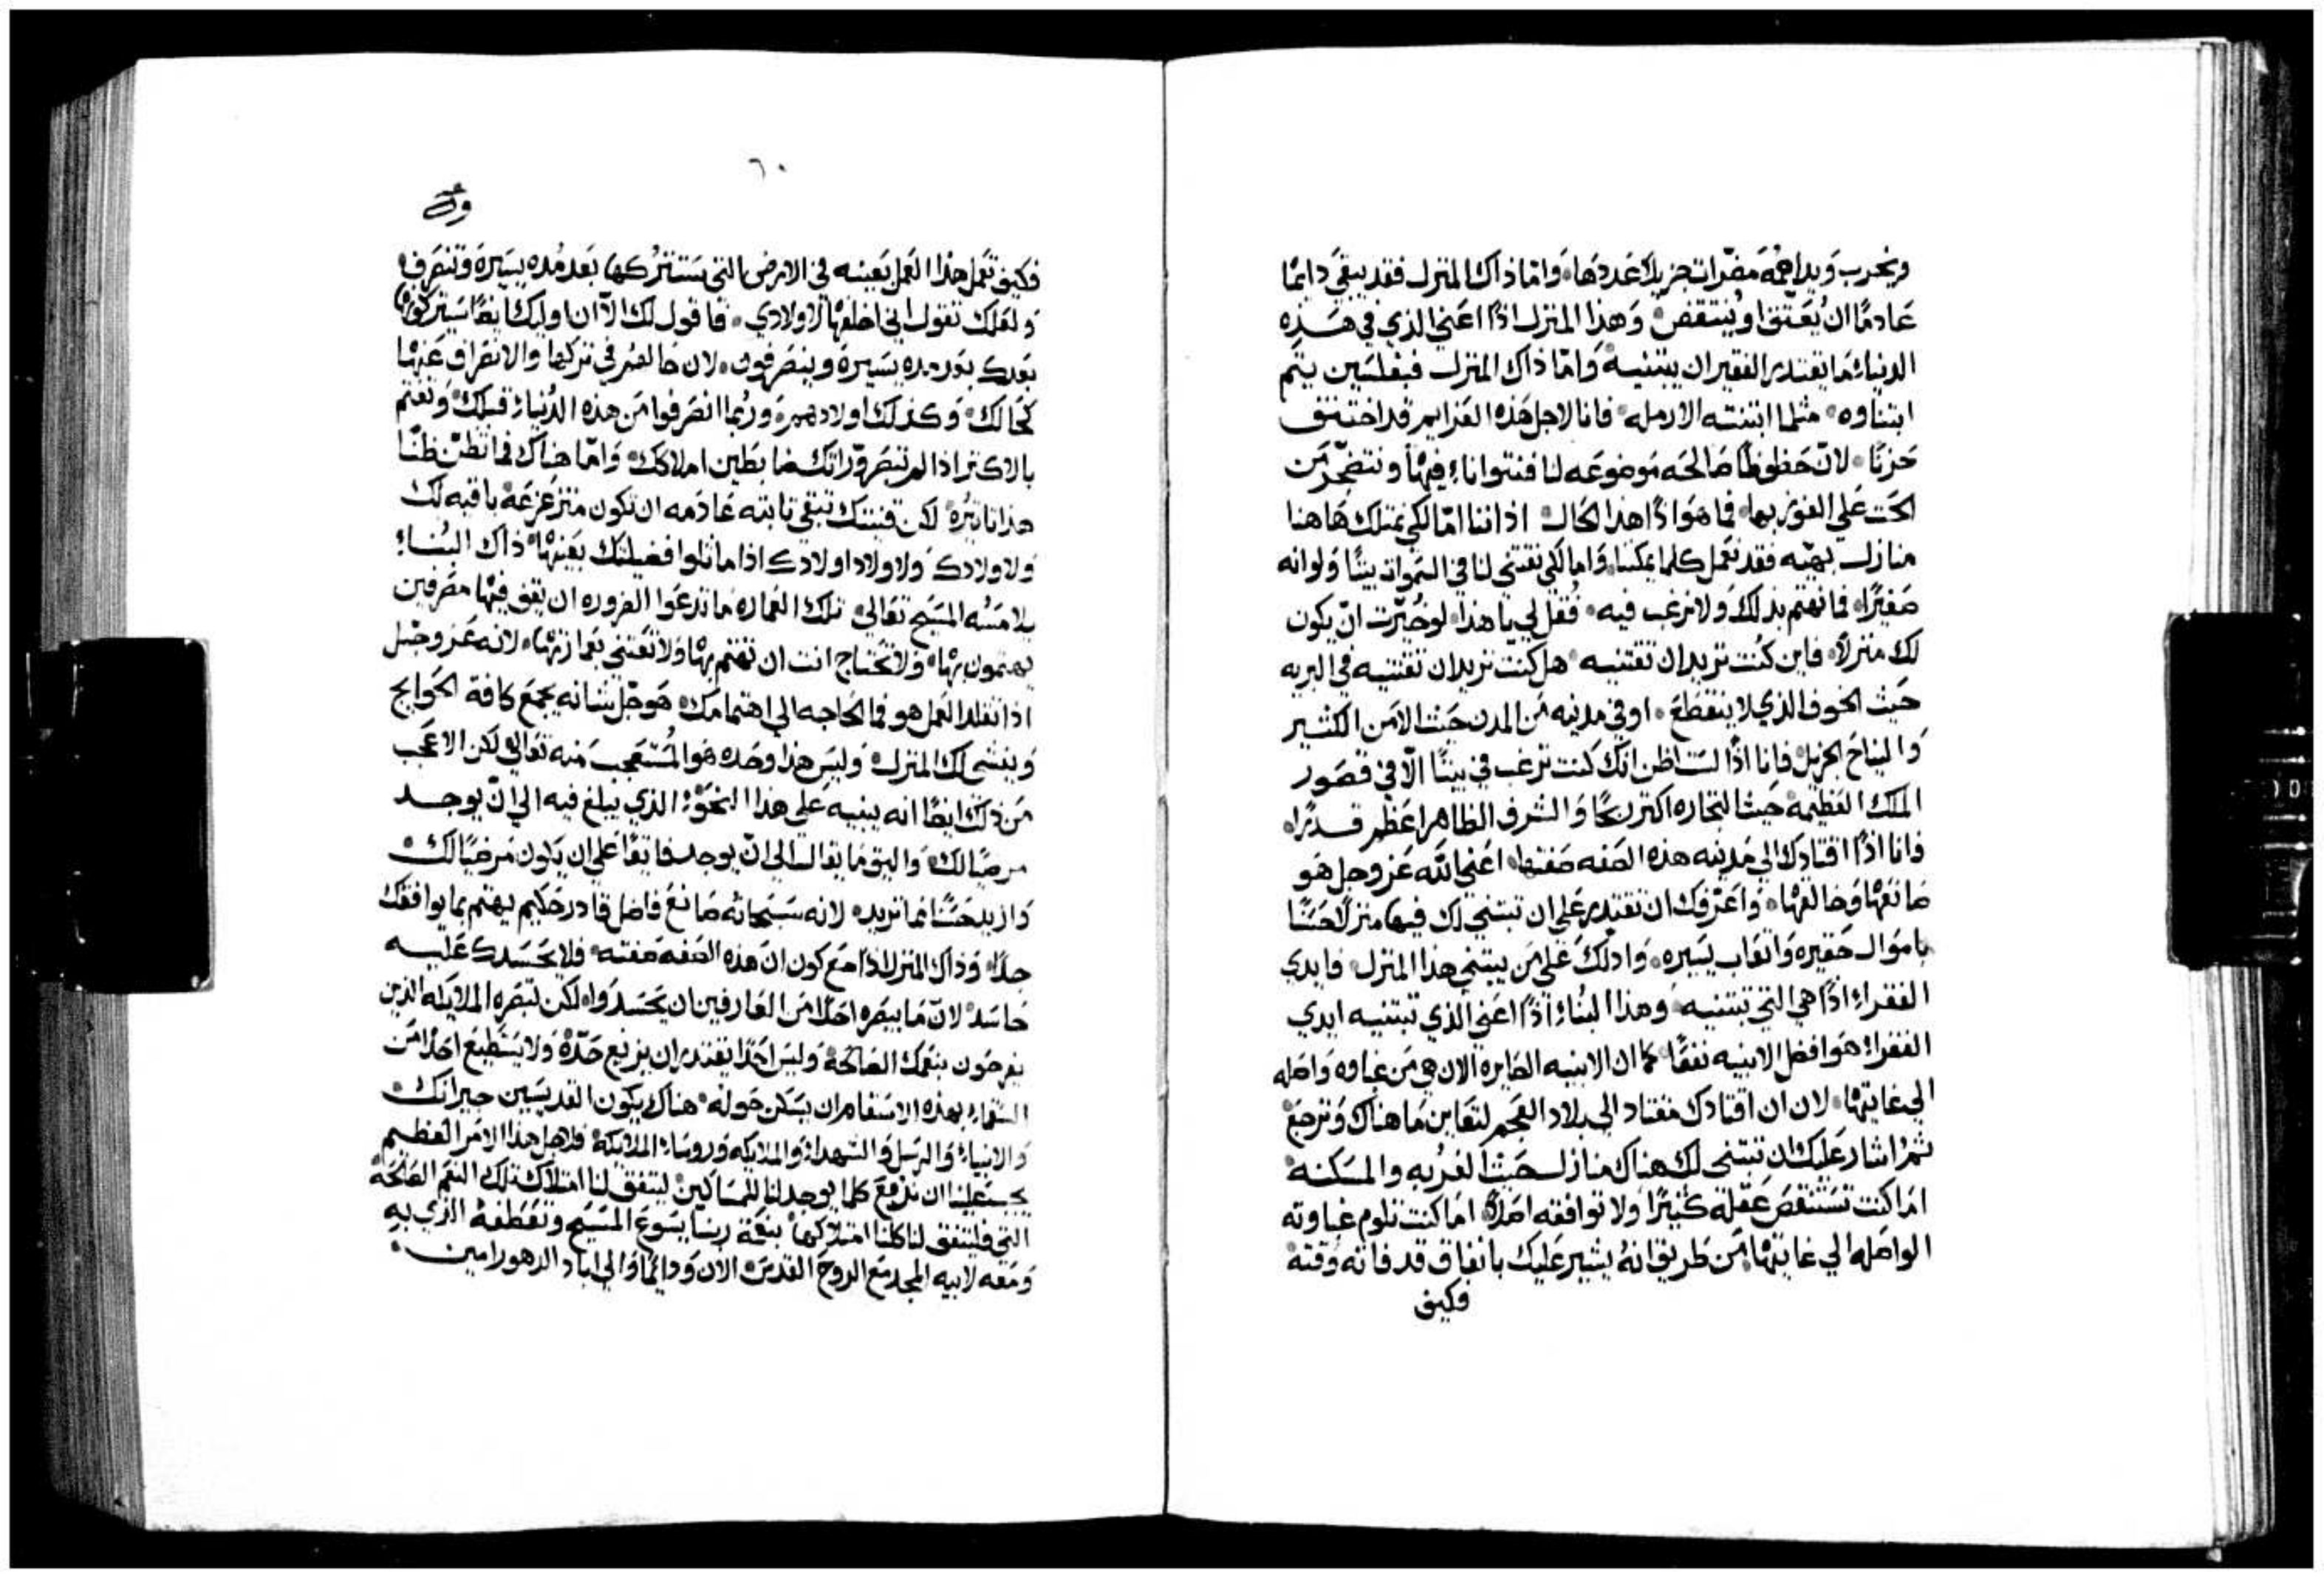 ويخرب ويداهمه مضرات جزيلا عددها، واما ذاك المنزل فقد يبقى دايمًا
عادمًا ان يُعتق او يُنتقض، وهذا المنزل اذًا اعني الذي في هذه
الدنياء ما يقتدر الفقير ان يبتنيه، واما ذاك المنزل فبفلسين يتم
ابتناوه، مثلما ابتنته الارمله، فانا لاجل هذه العزايم قد اختنق
حزنًا، لان حظوظًا صالحه موضوعه لنا فنتوانا فيها ونتضجر من
الحث على الفوز بها، فما هو اذًا هذا الحال، اذ اننا اما لكي نمتلك هاهنا
منازل بهيه فقد نعمل كلما يمكننا، واما لكي نقتني لنا في السموات بيتًا ولو انه
صغيرًا، فما نهتم بذلك ولا نرغب فيه، فقل لي يا هذا، لو خُيرت ان يكون
لك منزلاً، فاين كنت تريد ان تقتنيه، هل كنت تريد ان تقتنيه في البريه
حيث الخوف الذي لا ينقطع، او في مدنيه من المدن حيث الامن الكثير
والنياح الجزيل، فانا اذًا لست اظن انك كنت ترغب في بيتًا الّا في قصور
الملك العظيمة حيث التجاره اكثر ربحًا والشرف الظاهر اعظم قدرًا،
فانا اذًا اقتادك الى مدنيه هذه الصفه صفتها، اعني الله عز وجل هو
صانعها وخالقها، واعرفك ان تقتدر على ان تبتني لك فيها منزلاً حسنًا
باموال حقيره واتعاب يسيره، وادلك على من يبتني هذا المنزل، فايدي
الفقراء اذًا هي التي تبتنيه، وهذا البناء اذًا اعني الذي تبتنيه ايدي
الفقراء هو افضل الابنيه نفعًا، كما ان الابنيه الصايره الان هي من غباوه واصله
الى غايتها، لان ان اقتادك مقتاد الى بلاد العجم لتعاين ما هناك وترجع
ثم اشار عليك ان تبتني لك هناك منازل حيث الغربه والمسكنه
اما كنت تستنقص عقله كثيرًا ولا توافقه اصلاً، اما كنت تلوم غباوته
الواصله الى غايتها، من طريق انهُ يشير عليك بانفاق قد فاته وقته
وكيف
٦٠
فكيف تعمل هذا العمل بعينه في الارض التي ستتركها بعد مُده يسيره وتنصرف،
ولعلك تقول اني اخلفها لاولادي، فاقول لك الآن اوليك ايضًا سيتركونها
بعدك بعد مده يسيره وينصرفون، لان حالهم في تركها والانصراف عنها
كحالك، وكذلك اولادهم، وربما انصرفوا من هذه الدنياء قبلك، وتغتم
بالاكثر اذا لم تبصر ورّاثك ضابطين املاكك، واما هناك فما تظن ظنًا
هذا تاثيره، لكن قنيتك تبقى ثابته عادمه ان تكون متزعزعه باقيه لك
ولاولادك ولاولاد اولادك اذا ماثلوا فضيلتك بعينها، ذاك البناء
يلامسُه المسيح تعالى، تلك العماره ما تدعوا الضروره ان يقف فيها مصرفين
يهتمون بها، ولا تحتاج انت ان تهتم بها ولا تعتني بعمارتها، لانه عز وجل
اذا تقلد العمل هو فما الحاجه الى اهتمامك، هو جل شانه يجمع كافة الحوايج
وينشي لك المنزل، وليس هذا وحده هو المستعجب منه تعالى لكن الاعجب
من ذلك ايضًا انه يبنيه على هذا النحو، الذي يبلغ فيه الى ان يوجد
مرضيًا لك، واليق ما يقال الى ان يوجد فايقًا على ان يكون مرضيًا لك
وازيد حسنًا مما تريده، لانه سبحانه صانع فاضل قادر حكيم يهتم بما يوافقك
جدًا، وذاك المنزل اذًا مع كون ان هذه الصفه صفته، فلا يحسدك عليه
حاسد، لان ما يبصره احدًا من العارفين ان يحسدوا، لكن تبصره الملايكه الذين
يفرحون بنعمك الصالحة، وليس احدًا يقتدر ان يزيع حدّهُ ولا يستطيع احدًا من
السقماء بهذه الاسقام ان يسكن حوله، هناك يكون القديسين جيرانك،
والانبياء والرسل والشهداء والملايكه وروساء الملايكه، فلاجل هذا الامر العظيم
يجب علينا ان نذفع كلما يوجد لنا للمساكين، ليتفق لنا امتلاك تلك النعم الصالحة
التي فليتفق لنا كلنا امتلاكها، بنعمة ربنا يسوع المسيح وتعطفه الذي به
ومعه لابيه المجد مع الروح القدس، الان ودايمًا والى اباد الدهور امين،